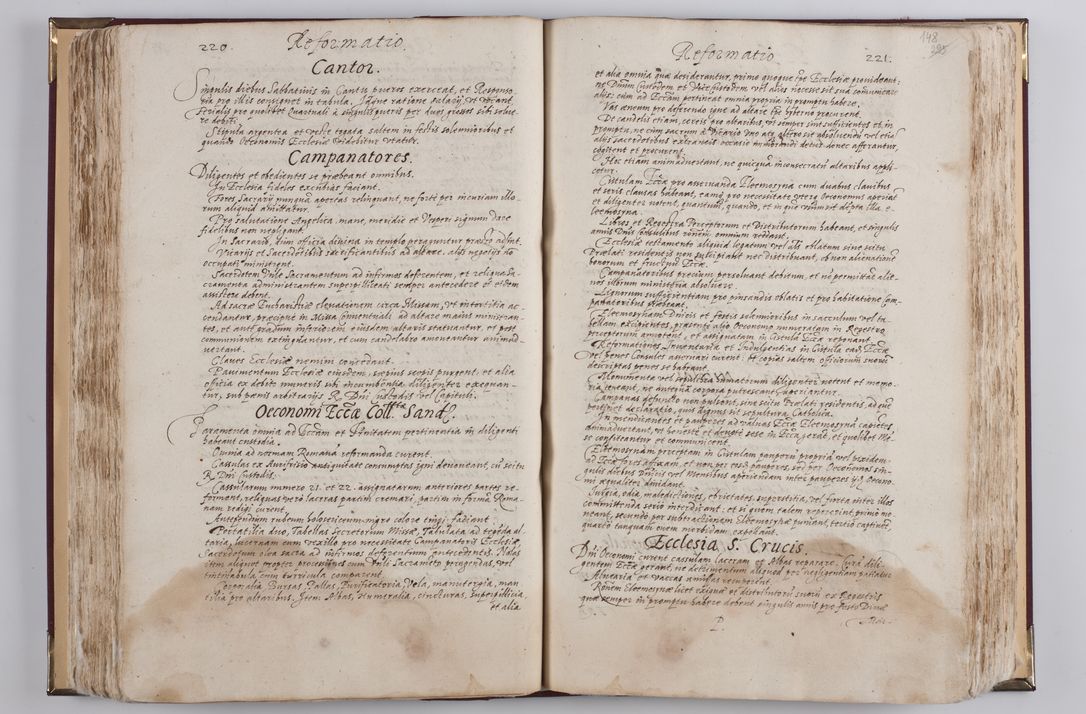 220. Reformatio.
Cantor.
Singulis diebus Sabbativis in Cantu pueros exerceat, et Responso-
ria pro illis consignet in tabula, Idque ratione salarij, vt vocant,
pro quolibet à singulis pueris per duos grossos sibi solue-
re debiti.
Stipula argentea et veste togata saltem in festis solemnioribus et
quando Oeconomis Ecclesiæ videbitur vtatur.
Campanatores.
Diligentes et obedientes se præbeant omnibus.
In Ecclesia fideles excubias faciant.
Fores Sacrarij nunquā apertas relinquant, ne forte per incuriam illo-
rum aliquid admittatur.
Pro salutatione Angelica, mane, meridie et Vesperi signum dare
fidelibus non negligant.
In Sacrario, dum officia diuina in templo peraguntur præsto adsint.
Vicarijs et Sacerdotibus sacrificantibus ad altare, alijs negotijs nō
occupati ministrent.
Sacerdotem Vnlē Sacramentum ad infirmos deferentem, et reliqua Sa-
cramenta administrantem superpelliceati semper antecedere et eidem
assistere debent.
Ad sacræ Eucharistiæ eleuationem circa Missam, vt intortitia ac-
cendantur, præcipuè in Missa Conuentuali ad altare maius ministran-
tes, et ante gradum inferiorem eiusdem altaris statuantur, et post
communionem extinguantur, et cum candelabro amoueantur animad-
uertant.
Claues Ecclesiæ nemini concedant.
Pauimentum Ecclesiæ eiusdem, sæpius scopis purgent, et alia
officia ex debito muneris sibi incumbentia diligenter exequan-
tur, sub pœnis arbitrarijs R. Dni custodis vel Capituli.
Oeconomi Eccæ Coll. Sand.
Paramenta omnia ad Eccam et Vnitatem pertinentia in diligenti
habeant custodia.
Omnia ad normam Romanā reformanda curent.
Cassulas ex Aurifrisio antiquitate consumptas igni deuoueant, cū scitu
R. Dni Custodis.
Cassularum numero 21. et 22. assignatarum anteriores partes re-
forment, reliquas verò laceras partim cremari, partim in formā Roma-
nam redigi curent.
Antependium rubeum holosericeum nigro colore tingi faciant.
Portatilia duo, Tabellas Secretorum Missæ, Tabulata ad tegēda al-
taria, lucernam cum vexillo pro necessitate Campanatoris Ecclesiæ
Sacerdotum olea sacra ad infirmos deferentium antecedentis. Nolas
item aliquot propter processiones cum Vnli Sacramēto peragendas, vel
tintinabula cum turricula comparent.
Corporalia Bursas, Pallas, Purificatoria, Vela, manutergia, man-
tilia pro altaribus. Item Albas, Humeralia, cincturas, superpellicia,
et alia
Reformatio. 221.
148
295
et alia omnia quæ desiderantur, primo quoque tpe Ecclesiæ prouideant:
ne Dnum Custodem et Vicecustodem vel alius necesse sit sua cōmunicare
alijs: cum ad Eccam pertineat omnia propria in promptu habere.
Vas æneum pro deferendo igne ad altare tpe hyberno procurent.
De candelis etiam, cereis pro altaribus, vt semper sint sufficientes et in
promptu, ne cum sacrum à Vicario vno aut altero sit absoluendū vel etiā
alijs sacerdotibus extraneis occasio morandi detur donec afferantur,
cogitent et procurent.
Hoc etiam animaduertant, ne quicquā inconsecratū altaribus appli-
cetur.
Cistulam Eccæ pro asseruanda Eleemosyna cum duabus clauibus
et seris clausas habeant, eamq pro necessitate vterq Oeconomus aperiat
et diligenter notent, quantum, quando, et in quē vsum sit depta illa e-
leemosyna.
Libros et Regestra Perceptorum et Distributorum habeant, et singulis
annis Dnis Consulibus rōnem omnium reddant.
Ecclesiæ testamento aliquid legatum vel aliàs oblatum sine scitu
Prælati residentis non suscipiant nec distribuant, ob non alienationē
bonorum et fructuū Eccæ.
Campanatoribus precium persoluant debitum, et nō permittāt alie-
nos illorum ministeria absoluere.
Lignorum sufficientiam pro pinsandis oblatis et pro habitatione Cam-
panatoribus præbeant.
Eleemosynam Dnicis et festis solemnioribus in sacculum vel ta-
bellam excipientes, præsente alio Oeconomo numeratam in Regestro
perceptorum annotent, et assignatam in Cistula Eccæ reponant.
Reformationes, Inuentaria et Indulgentias in Cistula ead. Eccæ
vel penes Consules asseruari curent: et copias saltem officiorum suorū
descriptas penes se habeant.
Monumenta vel sepulchra humatorum diligenter notent et memo-
ria teneant, ne antequā corpora putrescant aperiantur.
Campanas defuncto non pulsent, sine scitu Prælati residentis, ad quē
pertinet declaratio, quis dignus sit sepultura Catholica.
In mendicantes et pauperes ad valuas Eccæ Eleemosyna capietes
animaduertant, vt honestè et deuotè sese in Ecca gerāt, et quolibet Mē-
se confiteantur et communicent.
Eleemosynam perceptam in Cistulam pauperū propriā vel pixidem
ad Eccæ fores affixam, et non per eosd. pauperes, sed per Oeconomos sin-
gulis diebus Dnicis vel Mensibus aperiendam inter pauperes ijd. Oecono-
mi æqualiter diuidant.
Iurgia, odia, maledictiones, ebrietates, superstitia, vel furta inter illos
committenda serio interdicant: et si quem talem repererint, primò mo-
neant, secundo per subtractionem Eleemosynæ puniant, tertiò captiuēt,
quartò tanquam ouem morbidam, expellant.
Ecclesia S. Crucis.
Dni Oeconomi curent casulam laceram et Albas reparare. Curā dili-
gentem Eccæ gerant, ne detrimentum aliquod per negligentiam patiatur.
Aluearia et vaccas amissas recuperent.
Rōnem Eleemosynæ licet exiguæ et distributorū suorū ex Regestris
quæ semper in promptu habere debent singulis annis pro festo Diuæ
P.